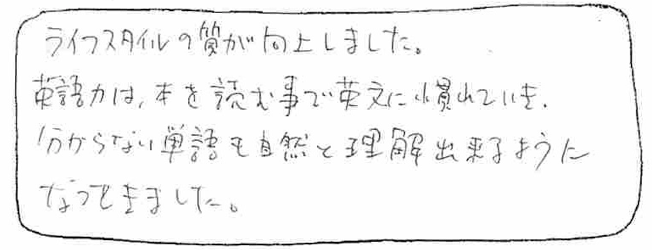 ライフスタイルの質が向上しました。
英語力は、本を読む事で英文に慣れていき、
分からない単語も自然と理解出来るように
なってきました。